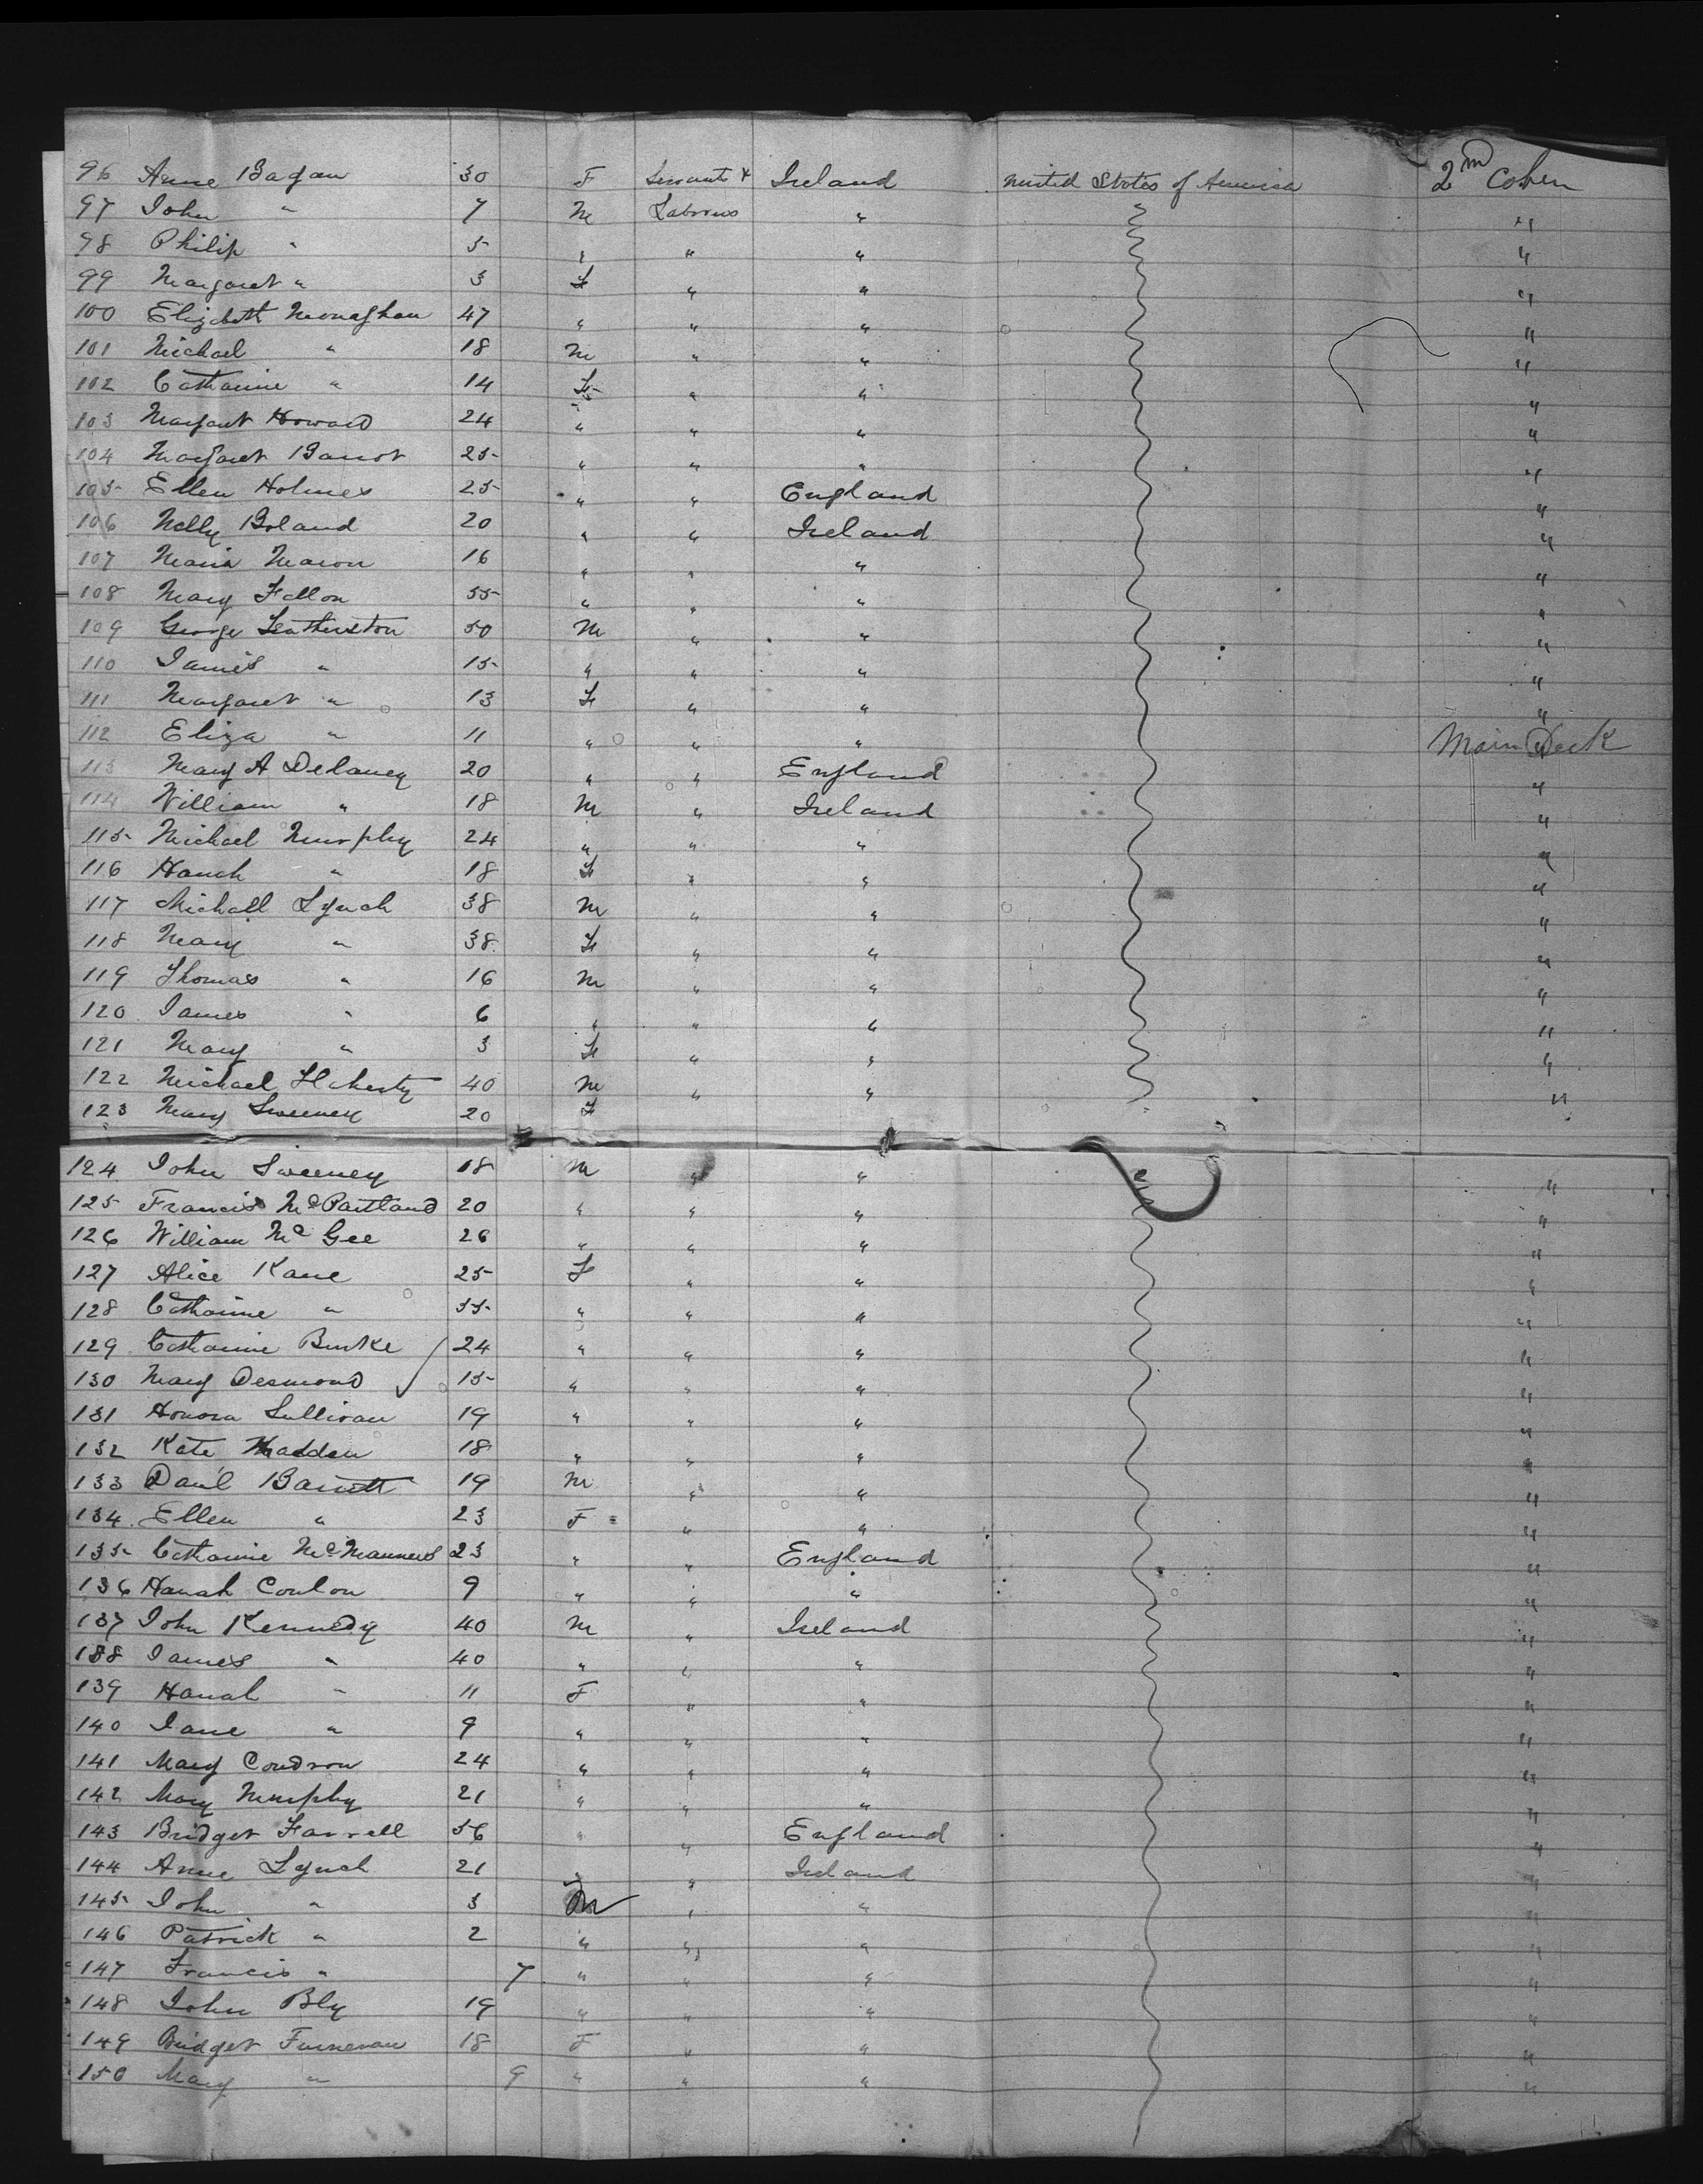 96 Anne Bagan 30 F Servants & Ireland United States of America 2nd Cohen
97 John " 7 M Labrous " "
98 Philip " 5 " " " "
99 Margaret " 3 F " " "
100 Elizabeth Monaghan 47 " " " "
101 Michael " 18 M " " "
102 Catharine " 14 F " " "
103 Margaret Howard 24 " " " "
104 Margaret Barrot 25 " " " "
105 Ellen Holmes 25 " " England "
106 Nelly Boland 20 " " Ireland "
107 Maria Maron 16 " " " "
108 Mary Fallon 55 " " " "
109 George Leatherston 50 M " " "
110 James " 15 " " " "
111 Margaret " 13 F " " "
112 Eliza " 11 " " " Main Deck "
113 Mary A Delaney 20 " " England "
114 William " 18 M " Ireland "
115 Michael Murphy 24 " " " "
116 Hanah " 18 F " " "
117 Michall Lynch 38 M " " "
118 Mary " 38 F " " "
119 Thomas " 16 M " " "
120 James " 6 " " " "
121 Mary " 3 F " " "
122 Michael Flaherty 40 M " " "
123 Mary Sweeney 20 F
124 John Sweeney 18 M " " "
125 Francis McPartland 20 " " " "
126 William Mc Gee 26 " " " "
127 Alice Kane 25 F " " "
128 Catharine " 55 " " " "
129 Catharine Burke 24 " " " "
130 Mary Desmond 15 " " " "
131 Honora Sullivan 19 " " " "
132 Kate Madden 18 " " " "
133 Danl Barrett 19 M " " "
134 Ellen " 23 F " " "
135 Catharine McManners 23 " " England "
136 Hanah Conlon 9 " " " "
137 John Kennedy 40 M " Ireland "
138 James " 40 " " " "
139 Hanah " 11 F " " "
140 Jane " 9 " " " "
141 Mary Condron 24 " " " "
142 Mary Murphy 21 " " " "
143 Bridget Farrell 56 " " England "
144 Anne Lynch 21 " " Ireland "
145 John " 3 M " " "
146 Patrick " 2 " " " "
147 Francis " 7 " " " "
148 John Bly 19 " " " "
149 Bridget Finneran 18 F " " "
150 Mary " 9 " " " "